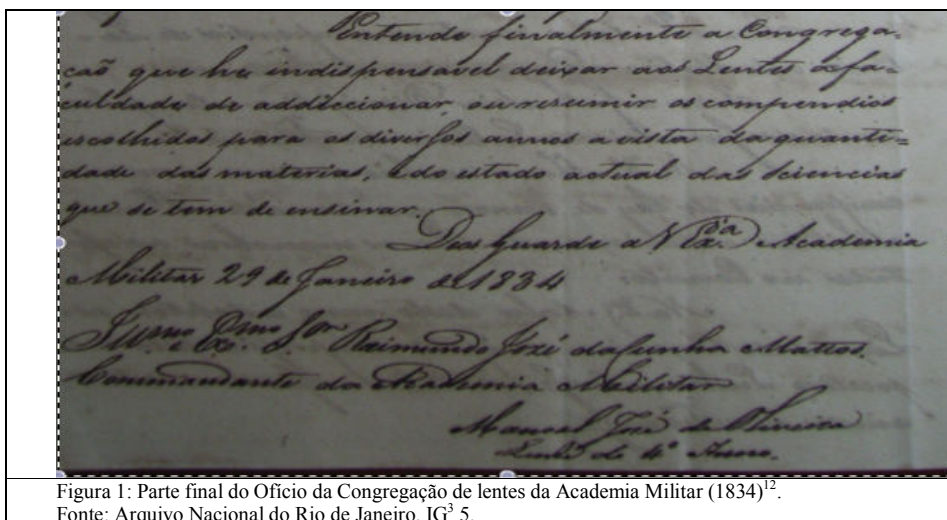 Entende finalmente a Congrega=
caõ que he indispensavel deixar aos Lentes a fa=
culdade de addiccionar ou resumir os compendios
escolhidos para os diversos annos a vista da quanti=
dade das materias, e do estado actual das Sciencias
que se tem de ensinar.
Deos Guarde a V Exa. Academia
Militar 29 de Janeiro de 1834
Illmo e Exmo. Snr Raimundo José da Cunha Mattos.
Commandante da Academia Militar
Manoel José de Oliveira
Lente do 4º Anno.
Figura 1: Parte final do Ofício da Congregação de lentes da Academia Militar (1834)12.
Fonte: Arquivo Nacional do Rio de Janeiro. IG3 5.